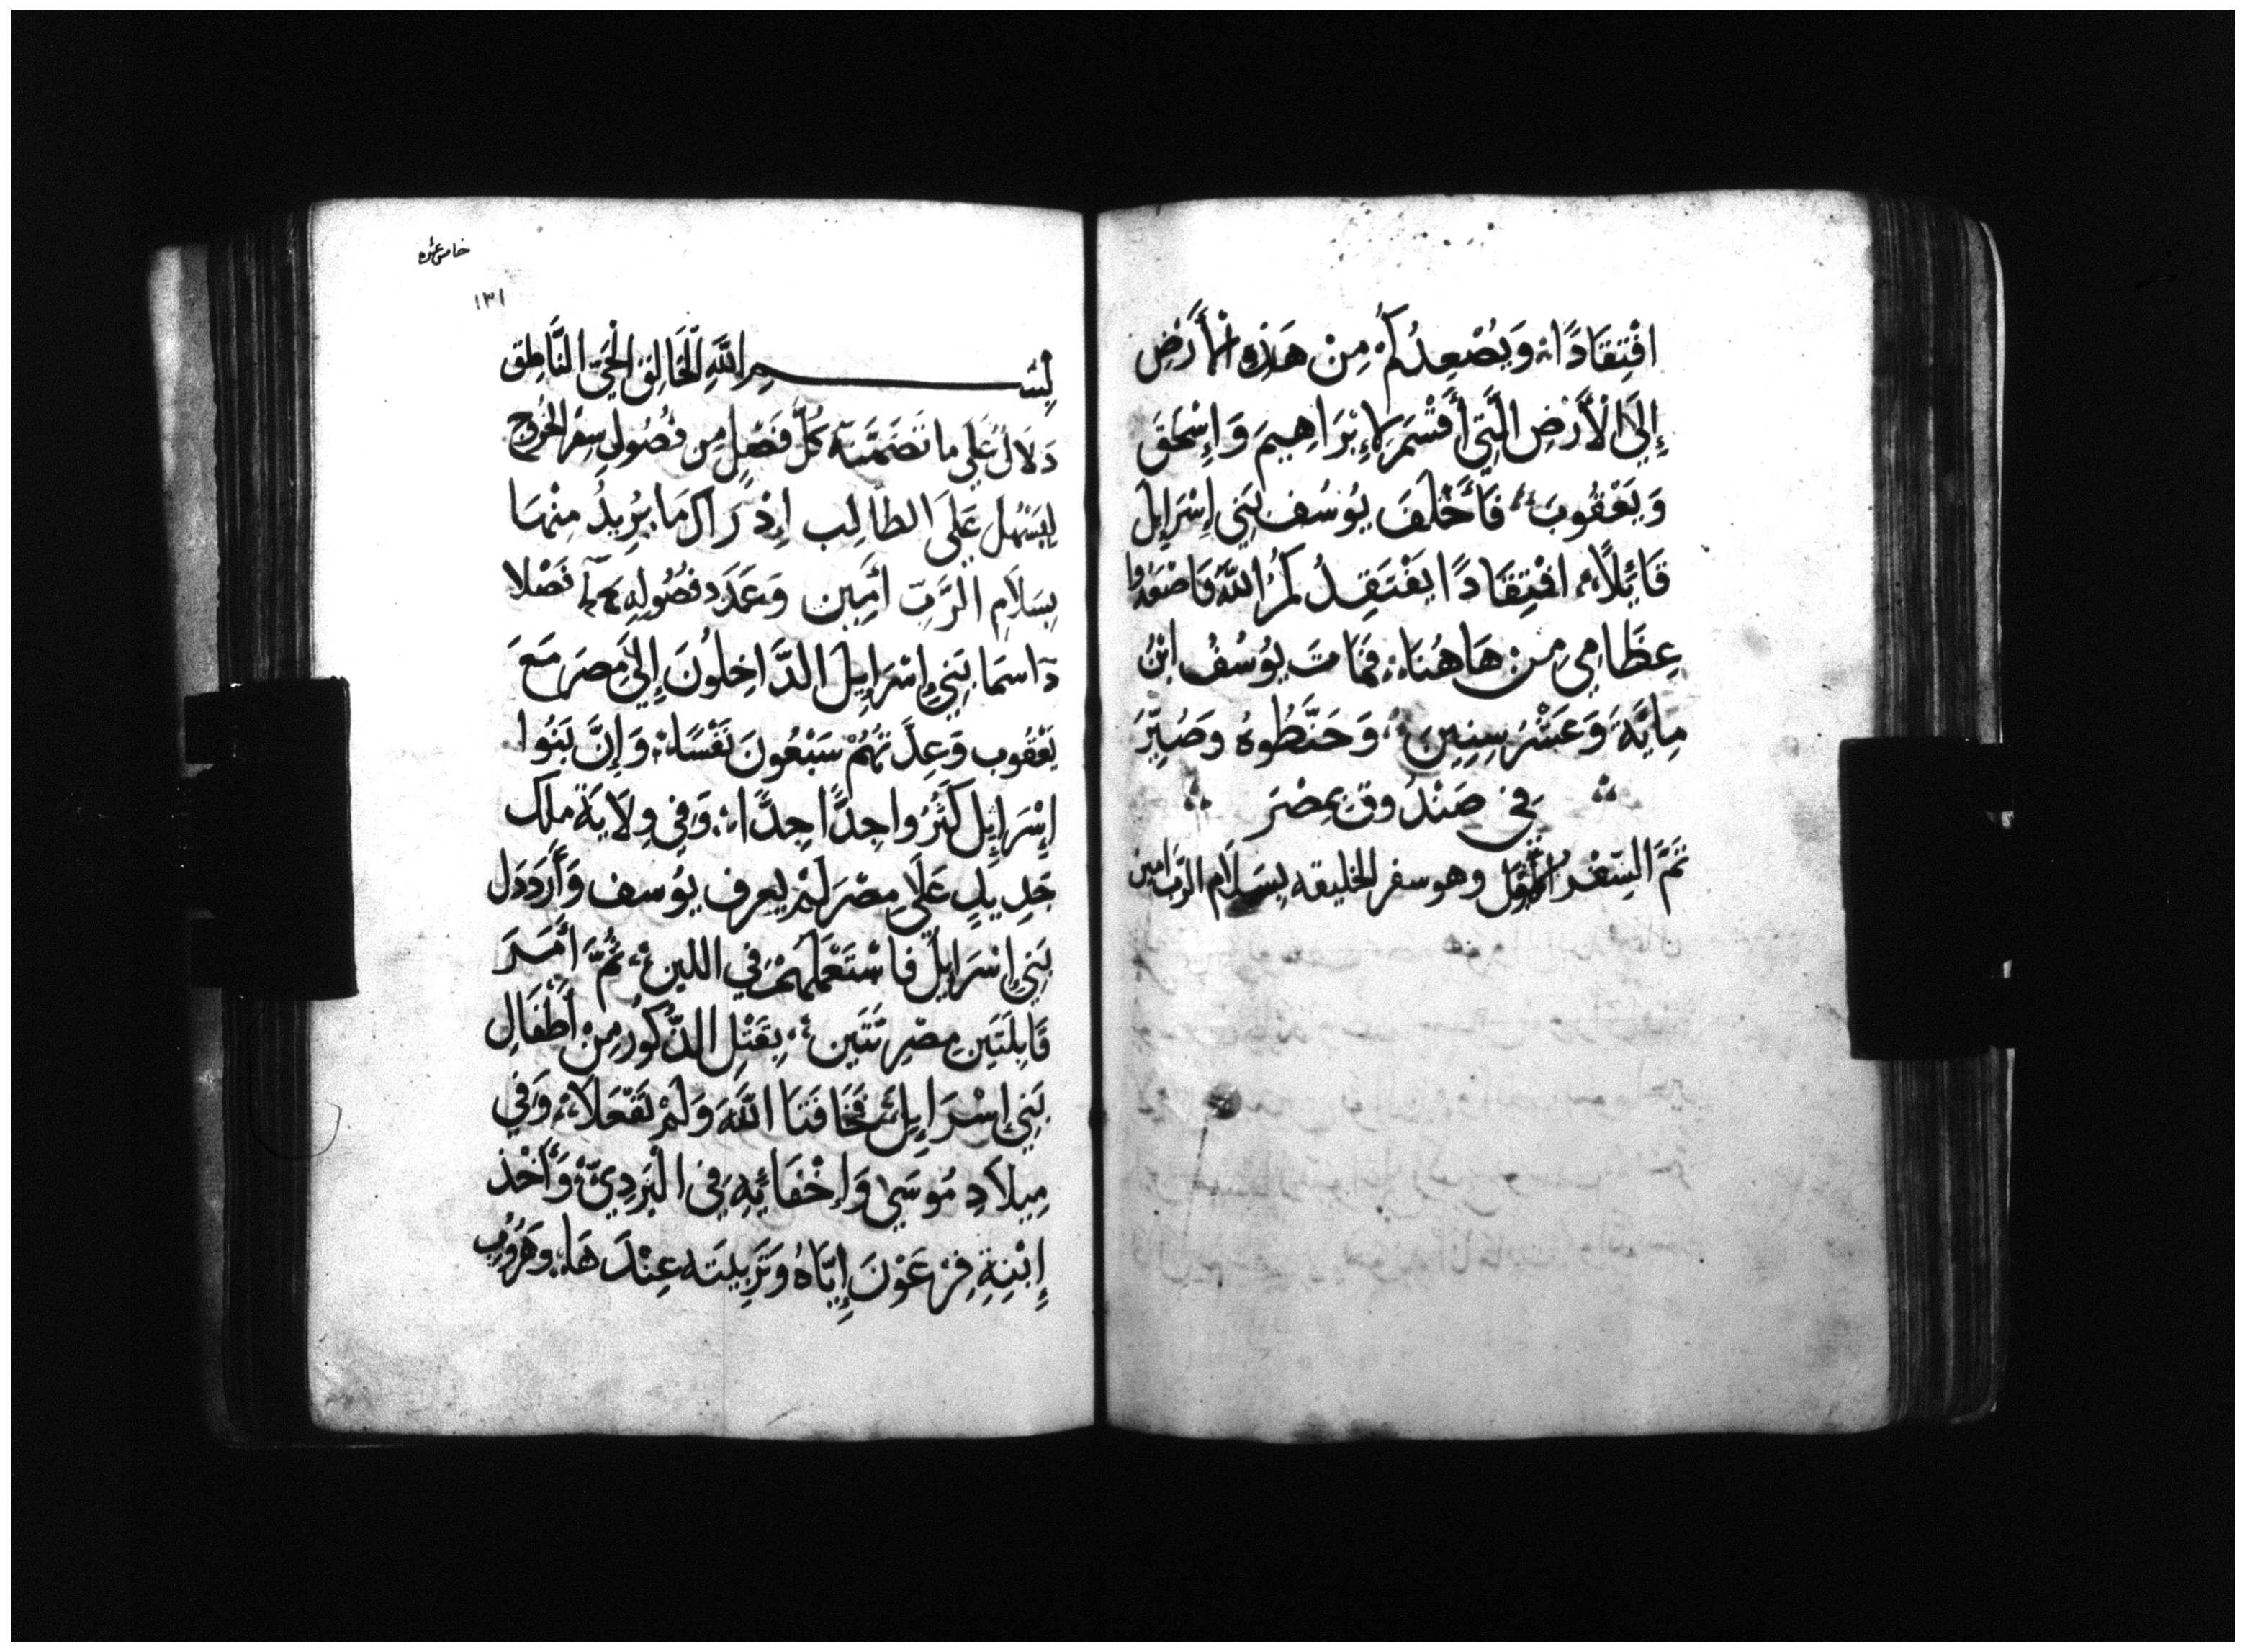 افْتِقَادًا؞ وَيُصْعِدُكُمْ مِنْ هَذِهِ الْأَرَضِ
إِلَيَ الْأَرْضِ الَّتِي أَقْسَمَ لِإِبْرَاهِيمَ وَإِسْحَقَ
وَيَعْقُوبَ؞ فَأَحْلَفَ يُوسُف بَنِي إِسْرَايِل
قَائِلًا؞ افْتِقَادًا يَفْتَقِدُكُمُ اللَّه فَاصْعِدُوا
عِظَامِي مِنْ هَاهُنَا؞ فَمَاتَ يُوسُفُ ابْنُ
مِايَةَ وَعَشْرَ سِنِينَ؞ وَحَنَّطُوهُ وَصُيِّرَ
فِي صَنْدُوقٍ بِمِصْرَ
تَمَّ السِّفْرُ الْأَوَّل وهو سفر الخليقه بِسَلَام الرَّب امين
خامس عشره
١٣١
بِسْـــــمِ اللَّهِ الْخَالِقِ الْحَيِّ النَّاطِق
دَلَالٌ عَلَي ما تَضَمَّنَهُ كُلُّ فَصْلٍ مِن فُصُولِ سِفْرِ الخُرُوج
لِيَسْهُل عَلَيَ الطالِب إِدْرَاك مَا يُرِيدُ مِنْهَا
بِسَلَامِ الرَّبِّ أَمِين وَعَدَد فُصُولِهِ فَصْلا
اسمَا بَنِي إِسْرَايِلَ الدَّاخِلُونَ إِلَيَ مِصرَ مَعَ
يَعْقُوب وَعِدَّتُهُمْ سَبْعُونَ نَفْسًا؞ وَإِنَّ بَنُوا
إِسْرَايِل كَثُرُوا جِدًّا جِدًّا؞ وَفِي وِلَايَةِ ملك
جَدِيدٍ عَلَي مِصْرَ لَمْ يعرف يُوسف وَأَرْذَل
بَنِي إِسْرَايِلَ فاسْتَعْمَلَهُمْ فِي اللبن؞ ثُمَّ أَمَرَ
قَابِلَتَين مِصْرِيَّتَين؞ بِقَتْلِ الذُّكُورُ مِنْ أَطْفَالِ
بَنِي إِسْرَايِل؞ فَخَافَتَا اللَّهَ وَلَمْ تَفْعَلَا؞ وَفِي
مِيلَادِ مُوسَي وَإِخْفَائِهِ فِي الْبَرْدِيّ؞ وَأَخْذ
إِبْنِةِ فِرْعَوْنَ إِيَّاهُ وَتَرْبِيَتَه عِنْدَهَا؞ وَهُرُوبِ